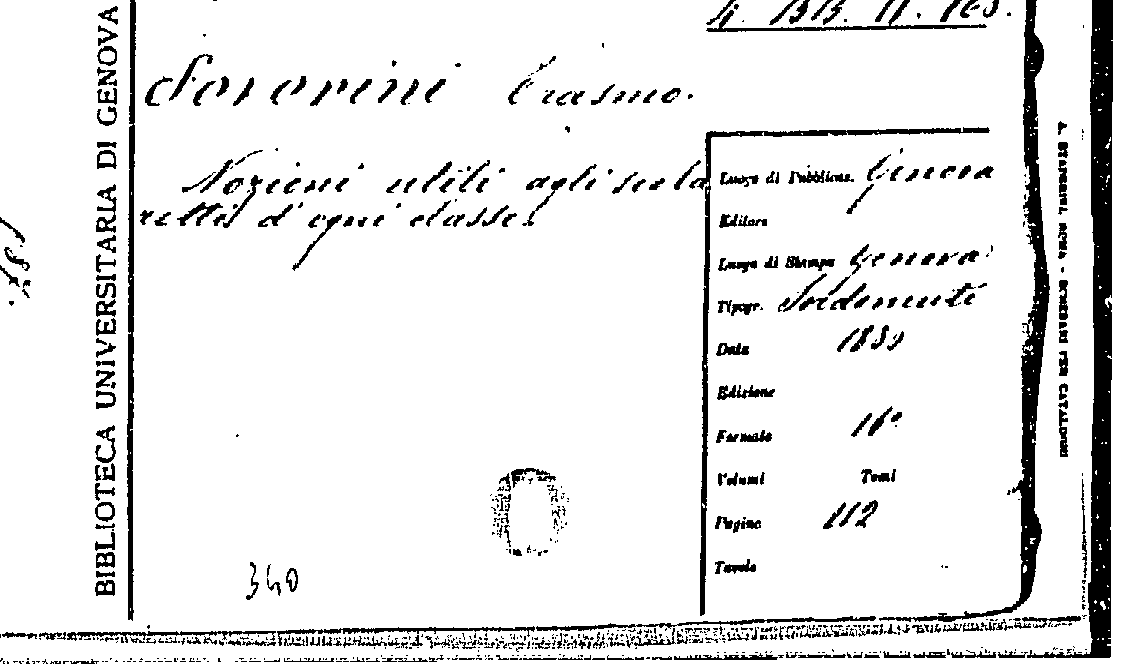 4. BB. II. 168.
BIBLIOTECA UNIVERSITARIA DI GENOVA
Sororini Erasmo.
Nozioni utili agli scola
retti d'ogni classe.
Luogo di Pubblicaz. Genova
Editore
Luogo di Stampa Genova
Tipogr. Sordomuti
Data
Edizione
Formato 16°
Volumi Tomi
Pagine 112
Tavole
340
A. STADERINI, ROMA - SCHEDARI PER CATALOGHI